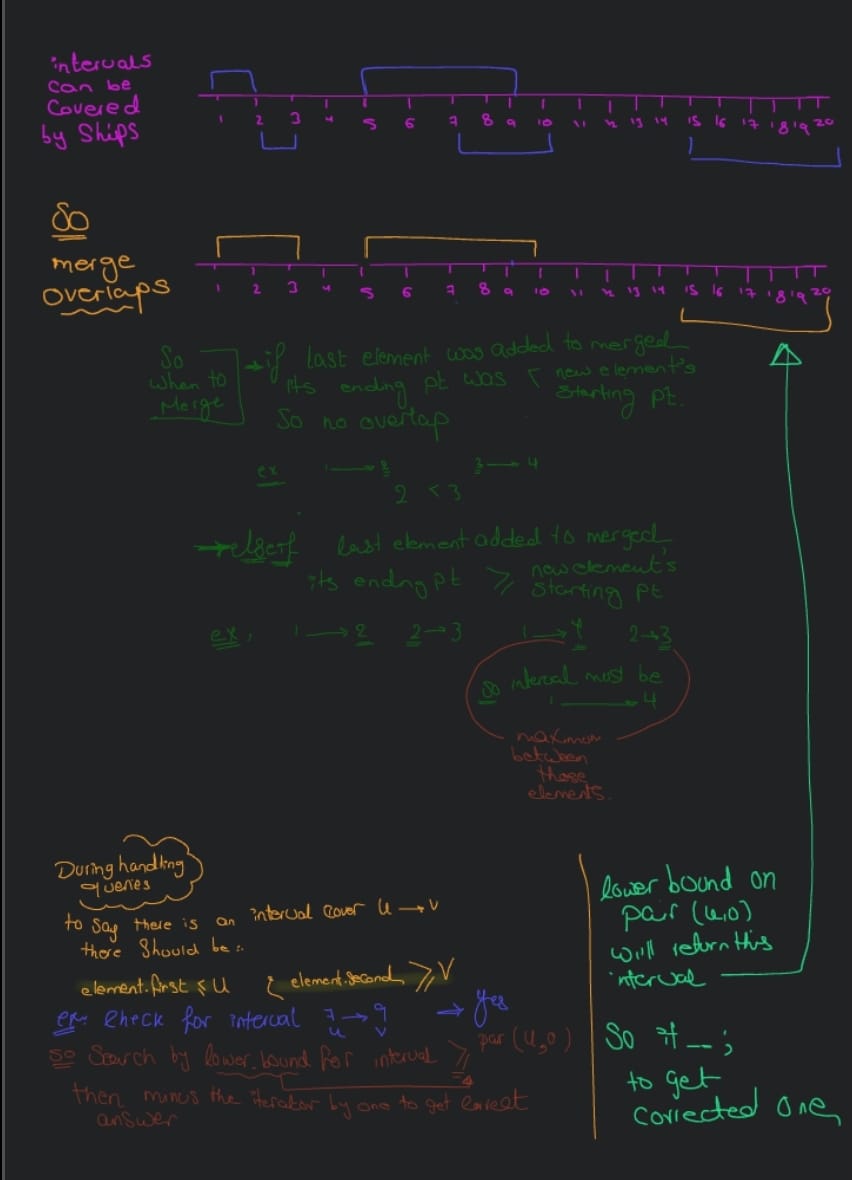 intervals
can be
Covered
by Ships
1 2 3 4 5 6 7 8 9 10 11 12 13 14 15 16 17 18 19 20
So
merge
overlaps
1 2 3 4 5 6 7 8 9 10 11 12 13 14 15 16 17 18 19 20
So
when to
Merge
→ if last element was added to merged
its ending pt was < new element's
starting pt.
So no overlap
ex 1 → 2 3 → 4
2 < 3
→ elseif last element added to merged,
its endng pt ≥ new element's
starting pt
ex, 1 → 2 2 → 3 1 → 4 2 → 3
So interval must be
1 → 4
maximum
between
those
elements.
During handling
queries
to say there is an interval cover u → v
there should be :
element.first ≤ u { element.second ≥ v
ex: Check for interval 7 → 9 → Yes
u v
so Search by lower_bound for interval ≥ pair (u,0)
then minus the iterator by one to get correct
answer
lower bound on
pair (u,0)
will return this
interval
So it--;
to get
corrected one